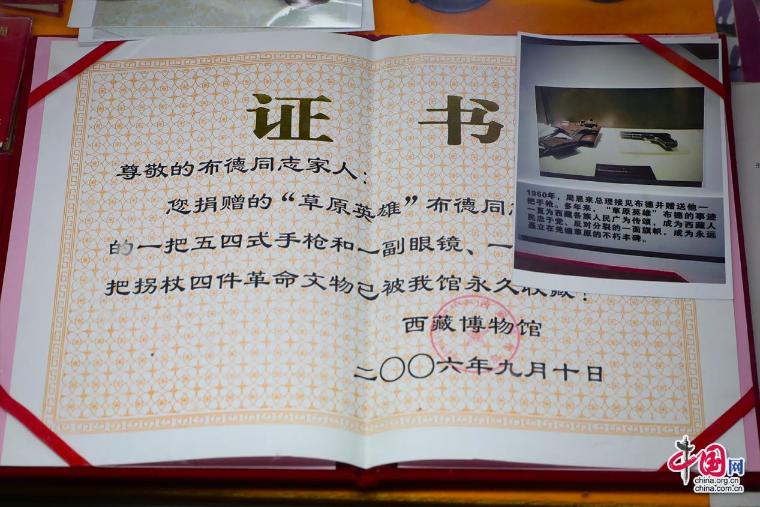 证 书
尊敬的布德同志家人：
您捐赠的“草原英雄”布德同
的一把五四式手枪和一副眼镜、一
把拐杖四件革命文物已被我馆永久收藏！
西藏博物馆
二〇〇六年九月十日
1960年，周恩来总理接见布德并赠送他一
把手枪。多年来，“草原英雄”布德的事迹
一直为西藏各族人民广为传颂，成为西藏人
民忠于党、反对分裂的一面旗帜，成为永远
矗立在羌塘草原的不朽丰碑。
中国网
china.org.cn
china.com.cn